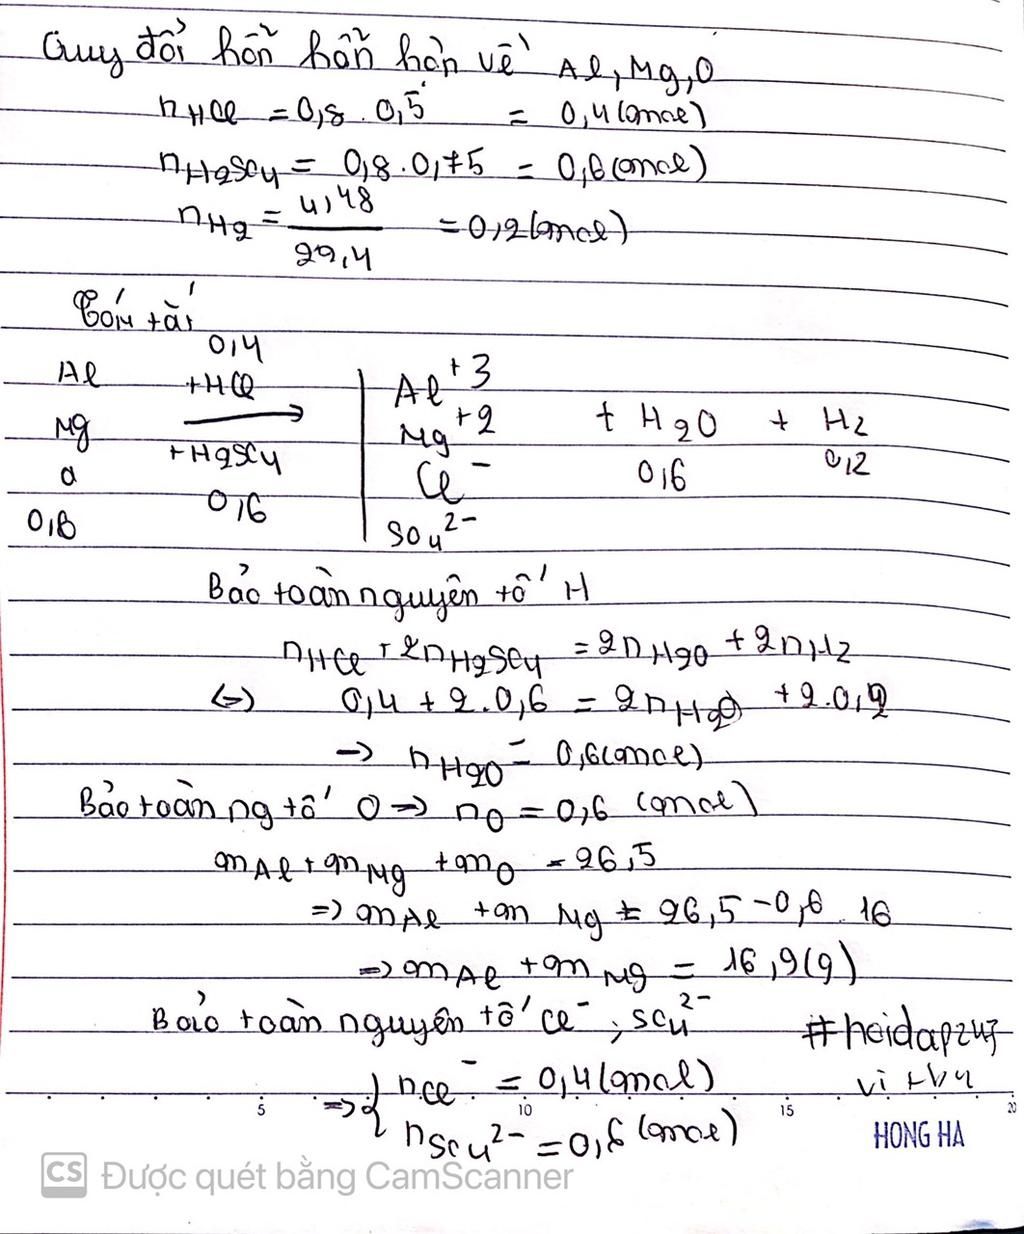 Quy đổi hỗn hỗn hợp về Al, Mg, O
nHCl = 0,8 . 0,5 = 0,4 (mol)
nH2SO4 = 0,8 . 0,75 = 0,6 (mol)
nH2 = 4,48 / 22,4 = 0,2 (mol)
Tóm tắt
0,4
Al +HCl Al+3
Mg → Mg+2 + H2O + H2
O +H2SO4 Cl- 0,6 0,2
0,6 0,6 SO4 2-
Bảo toàn nguyên tố H
nHCl + 2nH2SO4 = 2nH2O + 2nH2
<=> 0,4 + 2.0,6 = 2nH2O + 2.0,2
→ nH2O = 0,6 (mol)
Bảo toàn ng tố O => nO = 0,6 (mol)
mAl + mMg + mO = 26,5
=> mAl + mMg = 26,5 - 0,6 . 16
=> mAl + mMg = 16,9 (g)
Bảo toàn nguyên tố Cl-, SO4 2-
#hoidap247
=> { nCl- = 0,4 (mol)
nSO4 2- = 0,6 (mol)
5 10 15 20
HONG HA
CS Được quét bằng CamScanner